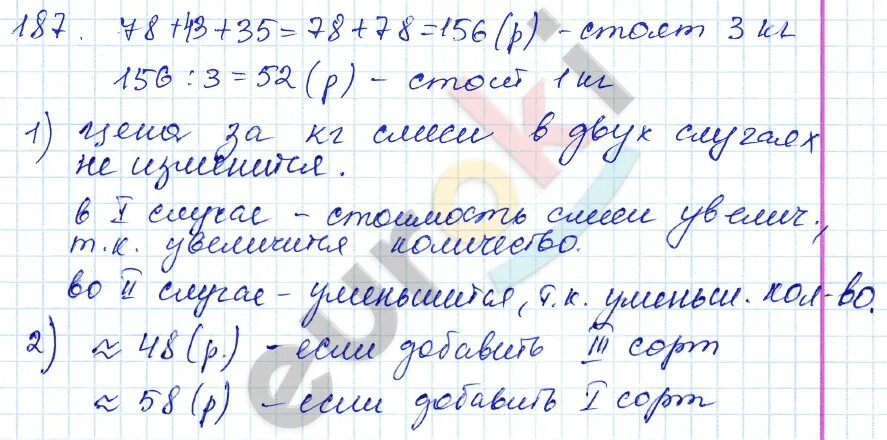 187. 78+43+35=78+78=156(р) - стоят 3 кг
156 : 3 = 52 (р) - стоит 1 кг
1) цена за кг смеси в двух случаях
не изменится.
в I случае - стоимость смеси увелич.,
т.к. увеличится количество.
во II случае - уменьшится, т.к. уменьш. кол-во.
2) ≈ 48 (р.) - если добавить III сорт
≈ 58 (р) - если добавить I сорт
euroki